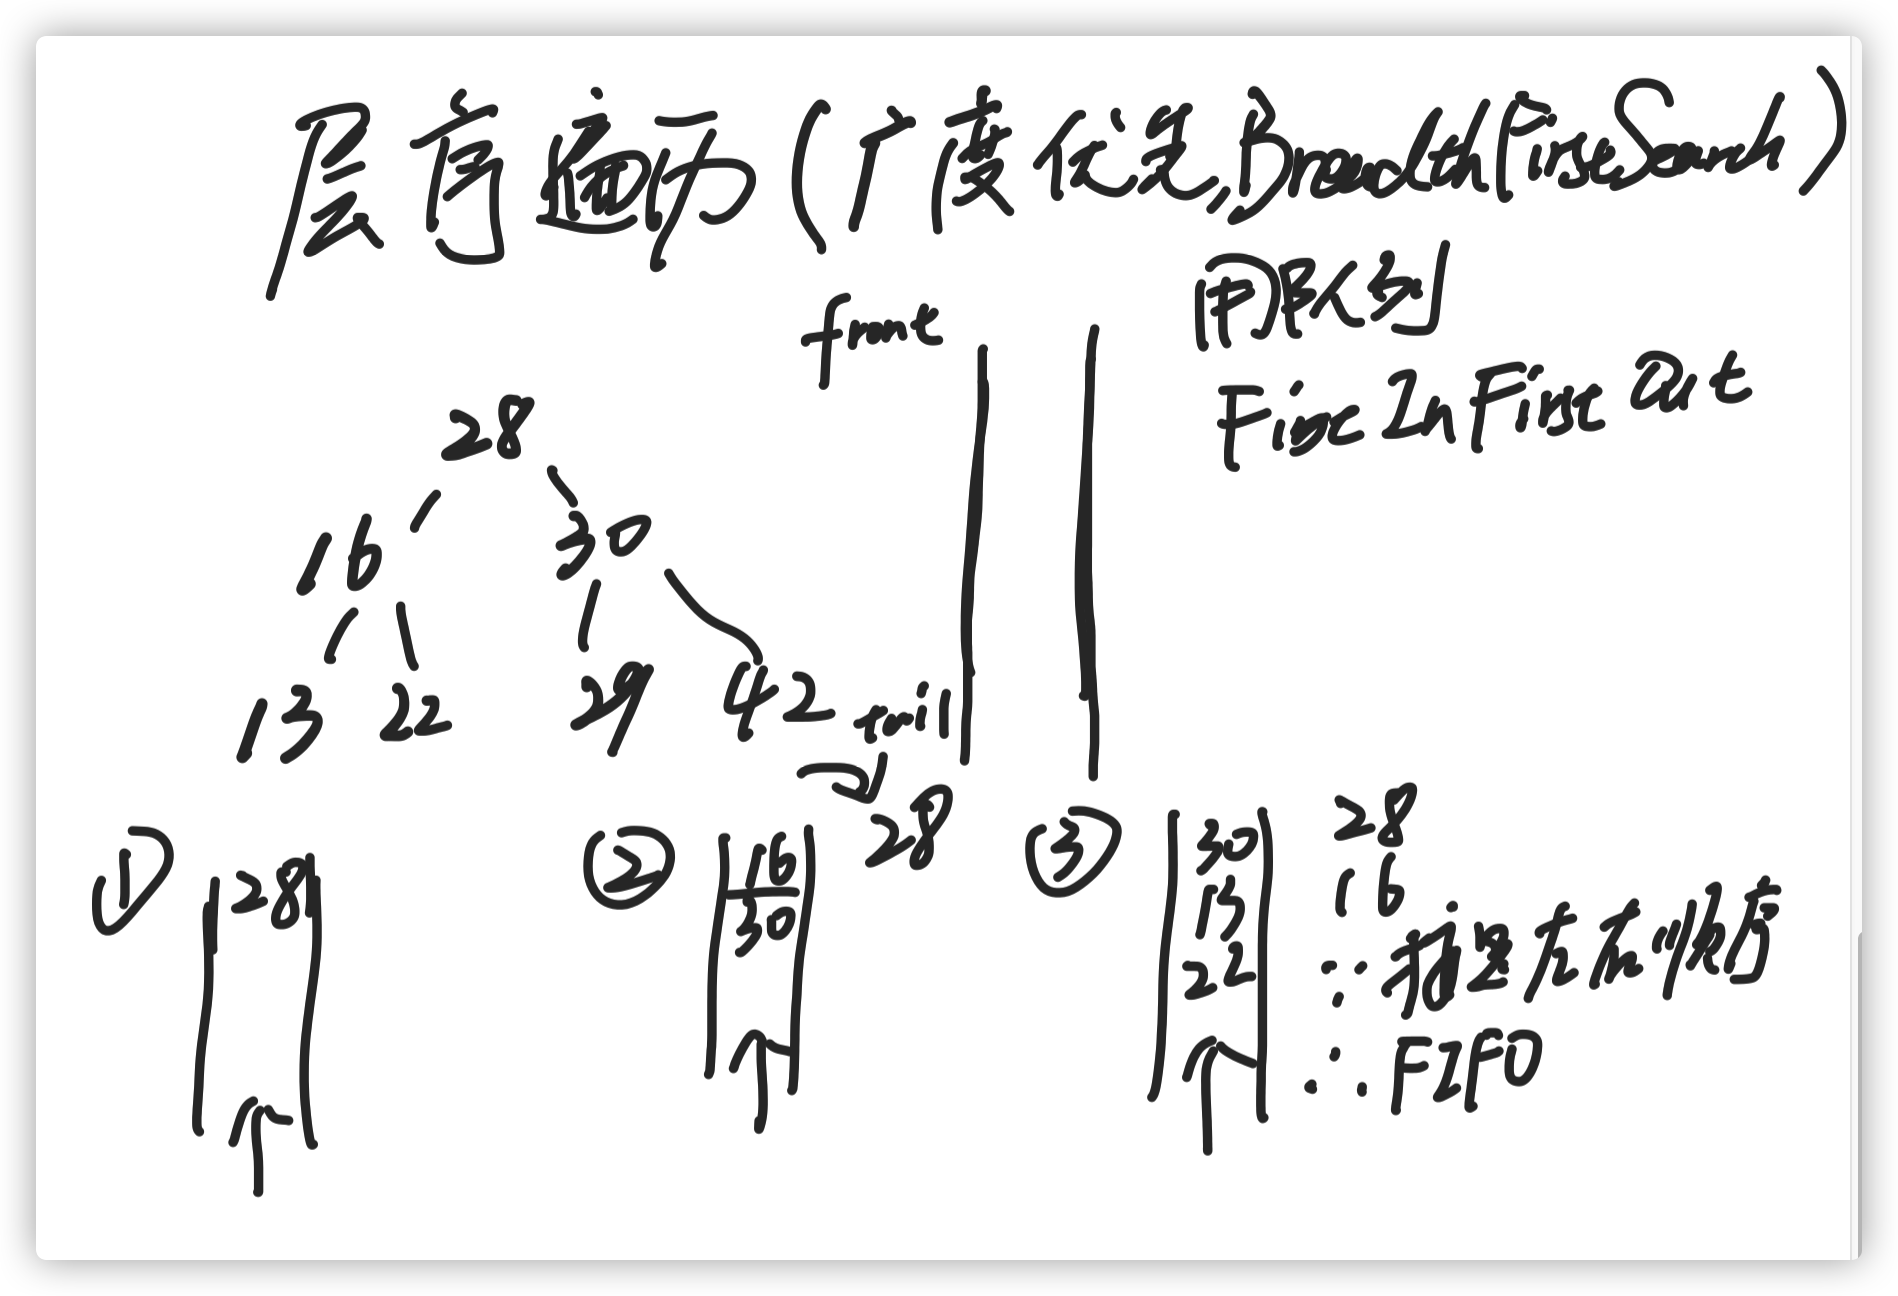 层序遍历(广度优先,BreadthFirstSearch)
用队列
First In First Out
front
28
16 30
13 22 29 42
tail
① 28
② 16 30
28
③ 30 13 22
28
16
∵ 按照左右顺序
∴ FIFO